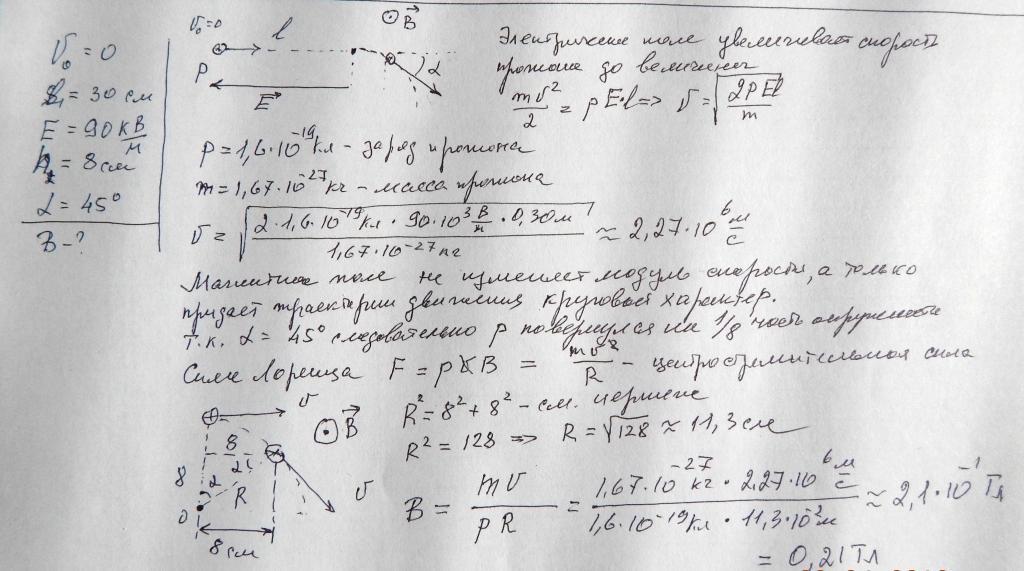 V₀ = 0
S₁ = 30 см
E = 90 кВ/м
h₂ = 8 см
α = 45°
B - ?
V₀=0 l ⊙ B⃗
P α
E⃗
Электрическое поле увеличивает скорость
протона до величины
mv²/2 = pE·l => V = √(2pEl/m)
p = 1,6·10⁻¹⁹ кл - заряд протона
m = 1,67·10⁻²⁷ кг - масса протона
V = √(2·1,6·10⁻¹⁹кл · 90·10³ В/м · 0,30м / 1,67·10⁻²⁷кг) ≈ 2,27·10⁶ м/с
Магнитное поле не изменяет модуль скорости, а только
придает траектории движения круговой характер.
Т.к. α = 45° следовательно p повернулся на 1/8 часть окружности
Сила Лоренца F = pVB = mv²/R - центростремительная сила
R² = 8² + 8² - см. чертеж
R² = 128 => R = √128 ≈ 11,3 см
V
⊙ B⃗
8
8 α R V
0
8 см
B = mV/pR = 1,67·10⁻²⁷кг · 2,27·10⁶ м/с / 1,6·10⁻¹⁹кл · 11,3·10⁻²м ≈ 2,1·10⁻¹ Тл
= 0,21 Тл